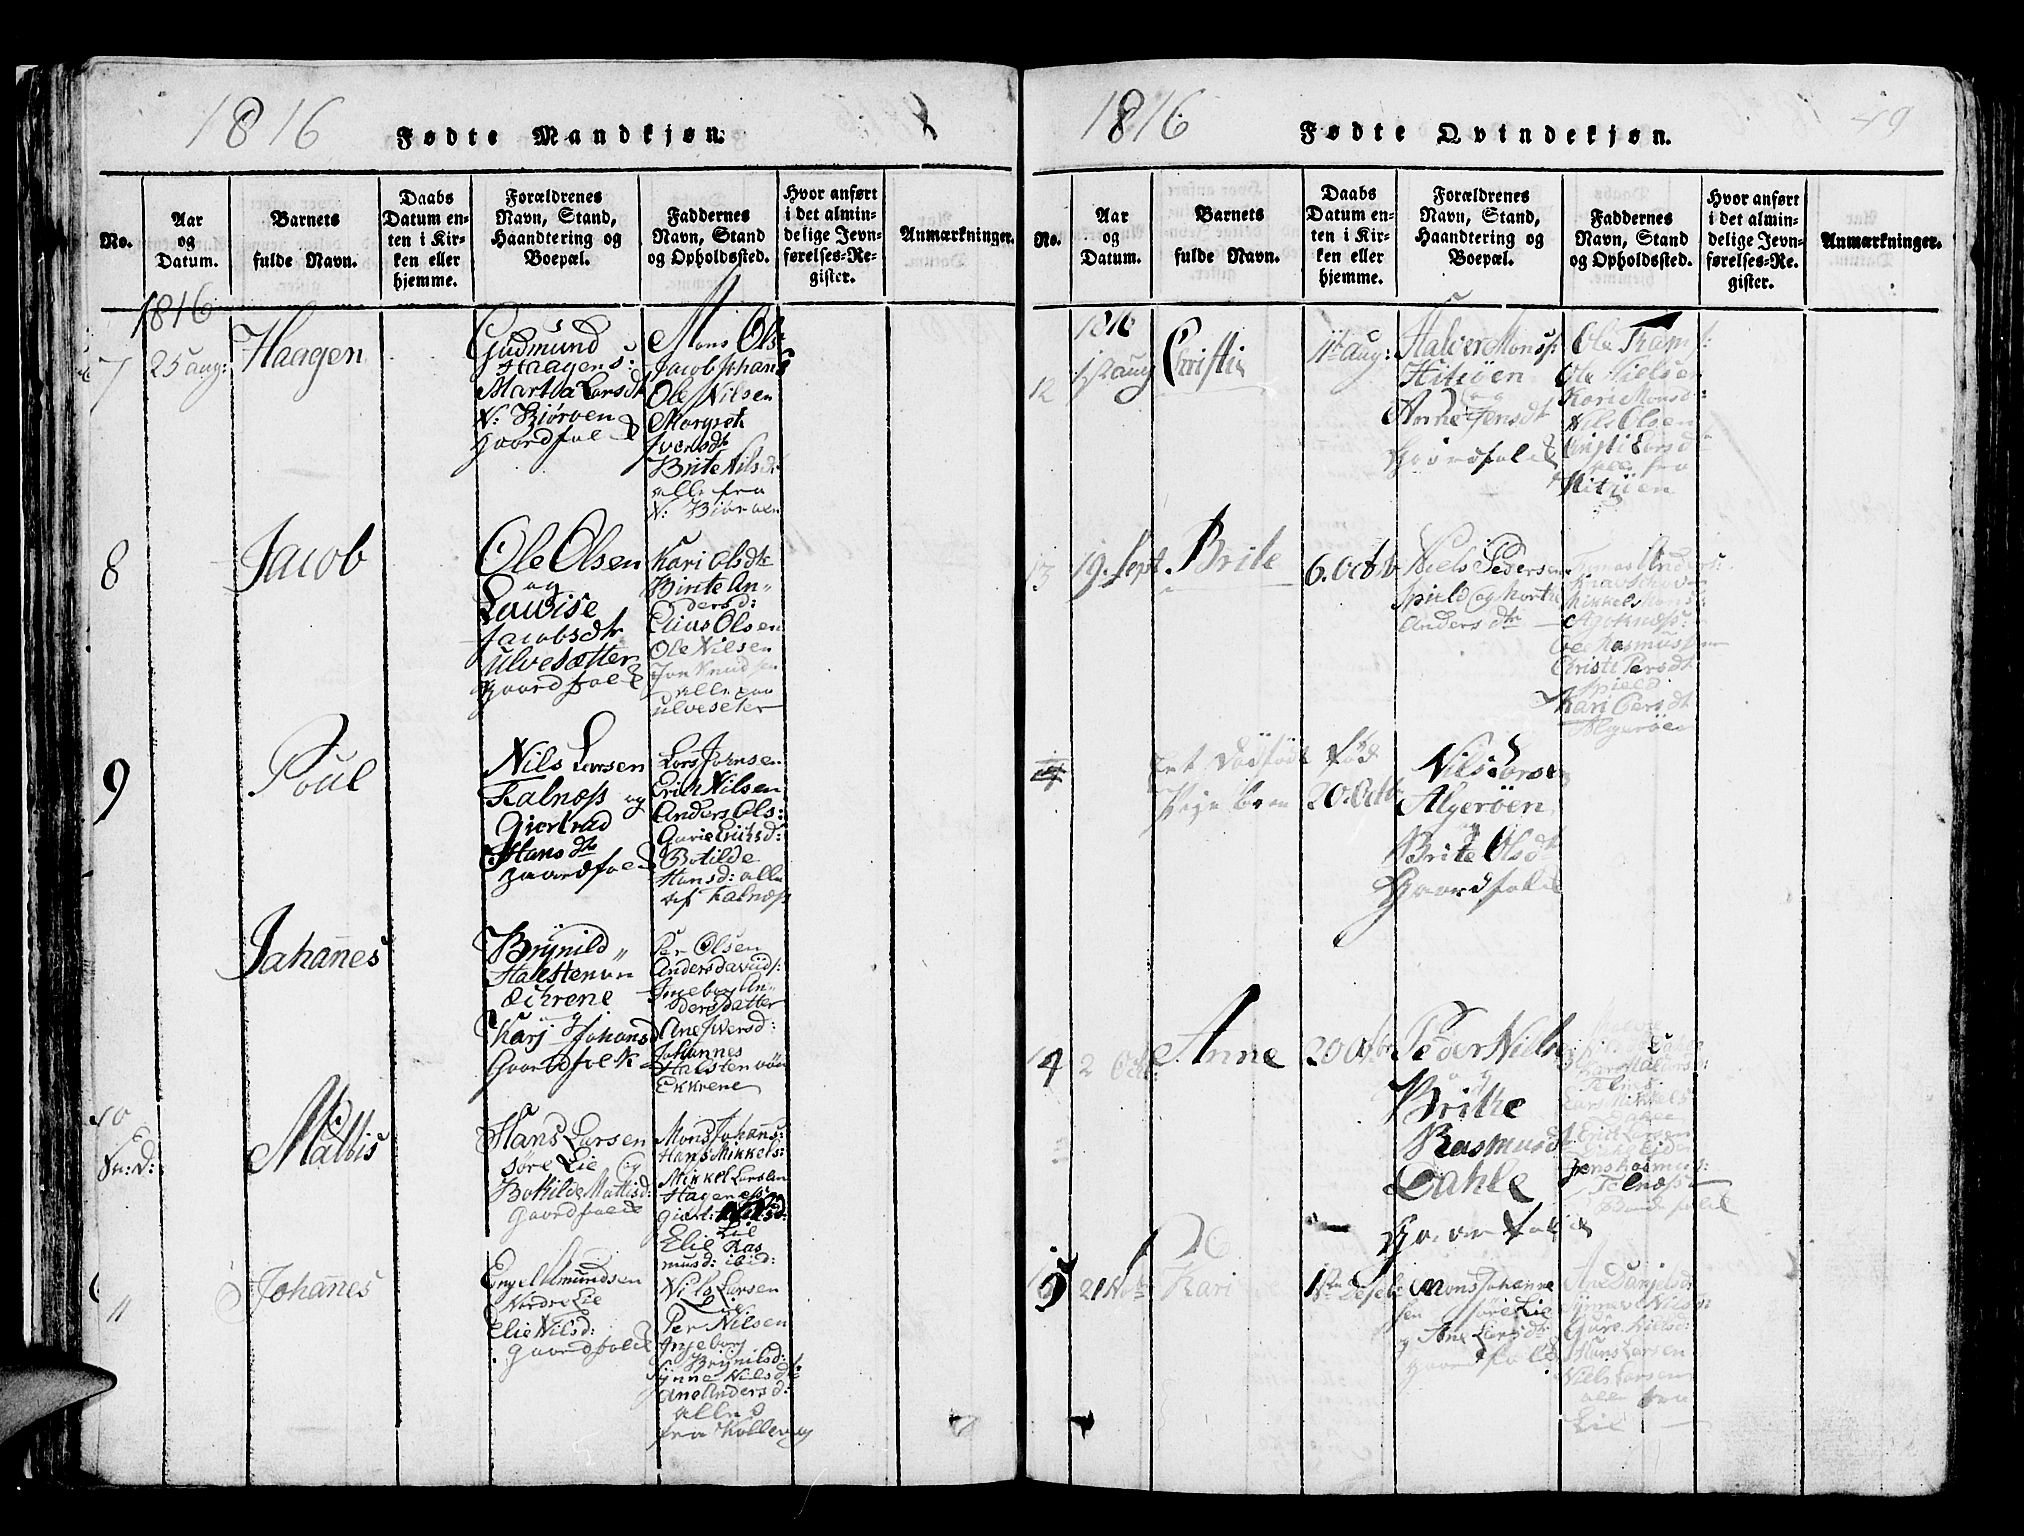 1816
Fødte Mandkjøn.
No.
Aar
og
Datum.
Barnets
fulde Navn.
Daabs
Datum en-
ten i Kir-
ken eller
hjemme.
Forældrenes
Navn, Stand,
Haandtering og
Boepæl.
Faddernes
Navn, Stand
og Opholdssted.
Hvor anført
i det almin-
delige Jevn-
førelses-Re-
gister.
Anmærkninger.
1816
7
25 aug:
Haagen
Gudmund
Haagens:
Martha Larsdtr
N: Biöroen
Gaardfolk
Mons Ols:
Jacob Johans
Ole Nilsen
Margret
Iversdtr
Brite Nilsdtr
alle fra
N: Biöroen
8
Jacob
Ole Olsen
og
Lowise
Jacobsdtr
Ulvesætter
Gaardfolk
Kari Olsdtr
Birite An-
dersd:
Elias Olsen
Ole Nilsen
Jon Knudsen
alle paa
Ulveseter
9
Poul
Nils Larsen
Kalnæss og
Giertrud
Hansdtr
Gaardfolk
Lars Johnsen
Erik Nilsen
Anders Ols:
Gurie Eriksd:
Botilde
Hansd: alle
af Kalnæss
Johannes
Brynild
Halstenøn
Eckrene
og
Kari Johansd
Gaardfolk
Per Olsen
Anders Daviids:
Ingebor An-
dersdatter
Ane Iversd:
Johannes
Halstenvöen
Ekkrene
10
Mattis
Hans Larsen
søre Lie og
Bothilde Mattisd:
Gaardfolk
Mons Johans:
Hans Mikkels:
Mikkel Larsen
Hagenæss
Lie
Elie Ras
musd: ibid:
11
Johannes
Engel Amundsen
Nordre Lie
Elie Nilsd:
Gaardfolk
Nils Larsen
Lie
Per Nilsen
Ingebor
Brynilsd:
Synne Nilsdtr
ane Andersd:
alle
fra Kolleveg
1816
49
Fødte Qvindekjøn.
No.
Aar
og
Datum.
Barnets
fulde Navn.
Daabs
Datum en-
ten i Kir-
ken eller
hjemme.
Forældrenes
Navn, Stand,
Haandtering og
Boepæl.
Faddernes
Navn, Stand
og Opholdssted.
Hvor anført
i det almin-
delige Jevn-
førelses-Re-
gister.
Anmærkninger.
1816
12
1st aug
Cristi
11te Aug:
Halver Monss:
Hitöen
og
Anne Jensdtr
Gaardfolk
Ole
Ole Nielsen
Kari Monsd:
Nils Olsen
Cristi Larsd
alle fra
Hitöen
13
19. Sept
Brite
6. Octb
Niels Pedersen
Spield og Marthe
Andersdtr
Mikkel Hans:
Ole Rasmussen
Christi Persdtr
Spield
Kari Persdtr
Algeröen
Et Dödfödt
Pige barn
20. Octb
Nils Larsen
Algeröen
og
Brite Olsdtr
Gaardfolk
14
2 Oct:
Anne
20 Octbr
Peder Niels
og
Brithe
Rasmusdtr
Dahle
Gaardfolk
Lars Mikkels
Dahle
Erik Larsen
Jens Rasmus:
Telnæss
15
21 Nob:
Kari
1ste Deseb:
Mons Johanne
sen søre Lie
og Ane Larsdtr
Gaardfolk
Ane Danielsd:
Synnev Nilsd
Gure Nielsd:
Hans Larsen
Niels Larsen
alle fra
Lie